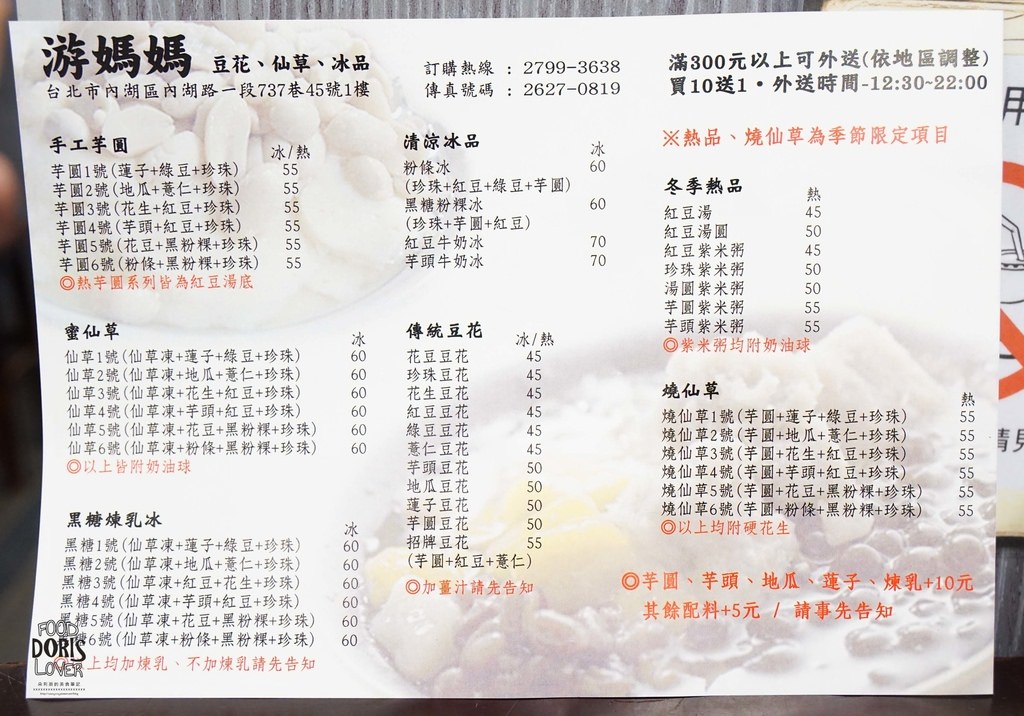 游媽媽 豆花、仙草、冰品
台北市內湖區內湖路一段737巷45號1樓
訂購熱線 : 2799-3638
傳真號碼 : 2627-0819
滿300元以上可外送(依地區調整)
買10送1・外送時間-12:30~22:00
手工芋圓 冰/熱
芋圓1號(蓮子+綠豆+珍珠) 55
芋圓2號(地瓜+薏仁+珍珠) 55
芋圓3號(花生+紅豆+珍珠) 55
芋圓4號(芋頭+紅豆+珍珠) 55
芋圓5號(花豆+黑粉粿+珍珠) 55
芋圓6號(粉條+黑粉粿+珍珠) 55
◎熱芋圓系列皆為紅豆湯底
蜜仙草 冰
仙草1號(仙草凍+蓮子+綠豆+珍珠) 60
仙草2號(仙草凍+地瓜+薏仁+珍珠) 60
仙草3號(仙草凍+花生+紅豆+珍珠) 60
仙草4號(仙草凍+芋頭+紅豆+珍珠) 60
仙草5號(仙草凍+花豆+黑粉粿+珍珠) 60
仙草6號(仙草凍+粉條+黑粉粿+珍珠) 60
◎以上皆附奶油球
黑糖煉乳冰 冰
黑糖1號(仙草凍+蓮子+綠豆+珍珠) 60
黑糖2號(仙草凍+地瓜+薏仁+珍珠) 60
黑糖3號(仙草凍+紅豆+花生+珍珠) 60
黑糖4號(仙草凍+芋頭+紅豆+珍珠) 60
糖5號(仙草凍+花豆+黑粉粿+珍珠) 60
6號(仙草凍+粉條+黑粉粿+珍珠) 60
上均加煉乳、不加煉乳請先告知
清涼冰品 冰
粉條冰 60
(珍珠+紅豆+綠豆+芋圓)
黑糖粉粿冰 60
(珍珠+芋圓+紅豆)
紅豆牛奶冰 70
芋頭牛奶冰 70
傳統豆花 冰/熱
花豆豆花 45
珍珠豆花 45
花生豆花 45
紅豆豆花 45
綠豆豆花 45
薏仁豆花 45
芋頭豆花 50
地瓜豆花 50
蓮子豆花 50
芋圓豆花 50
招牌豆花 55
(芋圓+紅豆+薏仁)
◎加薑汁請先告知
※熱品、燒仙草為季節限定項目
冬季熱品 熱
紅豆湯 45
紅豆湯圓 50
紅豆紫米粥 45
珍珠紫米粥 50
湯圓紫米粥 50
芋圓紫米粥 55
芋頭紫米粥 55
◎紫米粥均附奶油球
燒仙草 熱
燒仙草1號(芋圓+蓮子+綠豆+珍珠) 55
燒仙草2號(芋圓+地瓜+薏仁+珍珠) 55
燒仙草3號(芋圓+花生+紅豆+珍珠) 55
燒仙草4號(芋圓+芋頭+紅豆+珍珠) 55
燒仙草5號(芋圓+花豆+黑粉粿+珍珠) 55
燒仙草6號(芋圓+粉條+黑粉粿+珍珠) 55
◎以上均附硬花生
◎芋圓、芋頭、地瓜、蓮子、煉乳+10元
其餘配料+5元 / 請事先告知
用
請見
FOOD
DORIS
LOVER